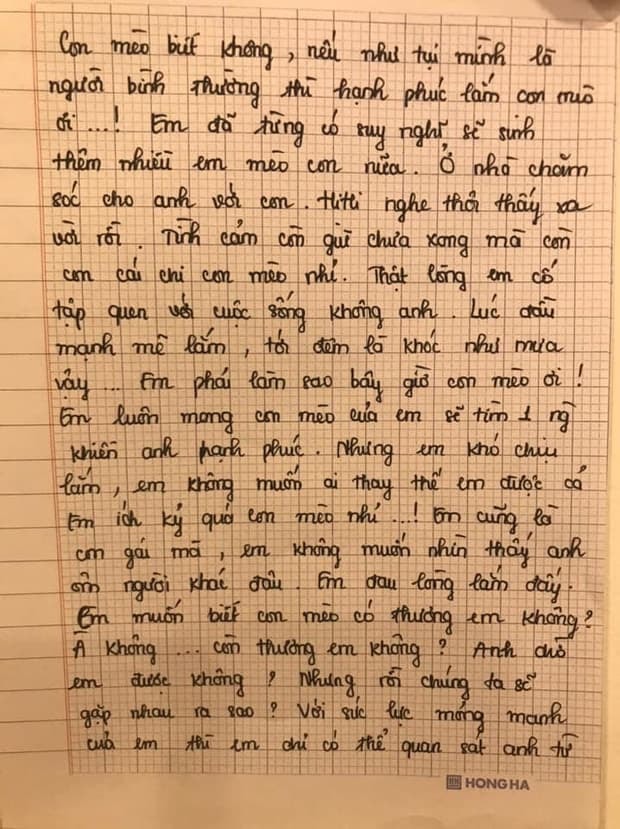 Con mèo biết không, nếu như tụi mình là
người bình thường thì hạnh phúc lắm con mèo
ơi ...! Em đã từng có suy nghĩ sẽ sinh
thêm nhiều em mèo con nữa. Ở nhà chăm
sóc cho anh với con. Hihi nghe thôi thấy xa
vời rồi. Tình cảm còn giữ chưa xong mà còn
con cái chi con mèo nhỉ. Thật lòng em cố
tập quen với cuộc sống không anh. Lúc đầu
mạnh mẽ lắm, tới đêm là khóc như mưa
vậy ... Em phải làm sao bây giờ con mèo ơi!
Em luôn mong con mèo của em sẽ tìm 1 ng
khiến anh hạnh phúc. Nhưng em khó chịu
lắm, em không muốn ai thay thế em được cả
Em ích kỷ quá con mèo nhỉ ...! Em cũng là
con gái mà, em không muốn nhìn thấy anh
ôm người khác đâu. Em đau lòng lắm đấy.
Em muốn biết con mèo có thương em không?
À không ... còn thương em không? Anh chờ
em được không? Nhưng rồi chúng ta sẽ
gặp nhau ra sao? Với sức lực mỏng manh
của em thì em chỉ có thể quan sát anh từ
HONG HA